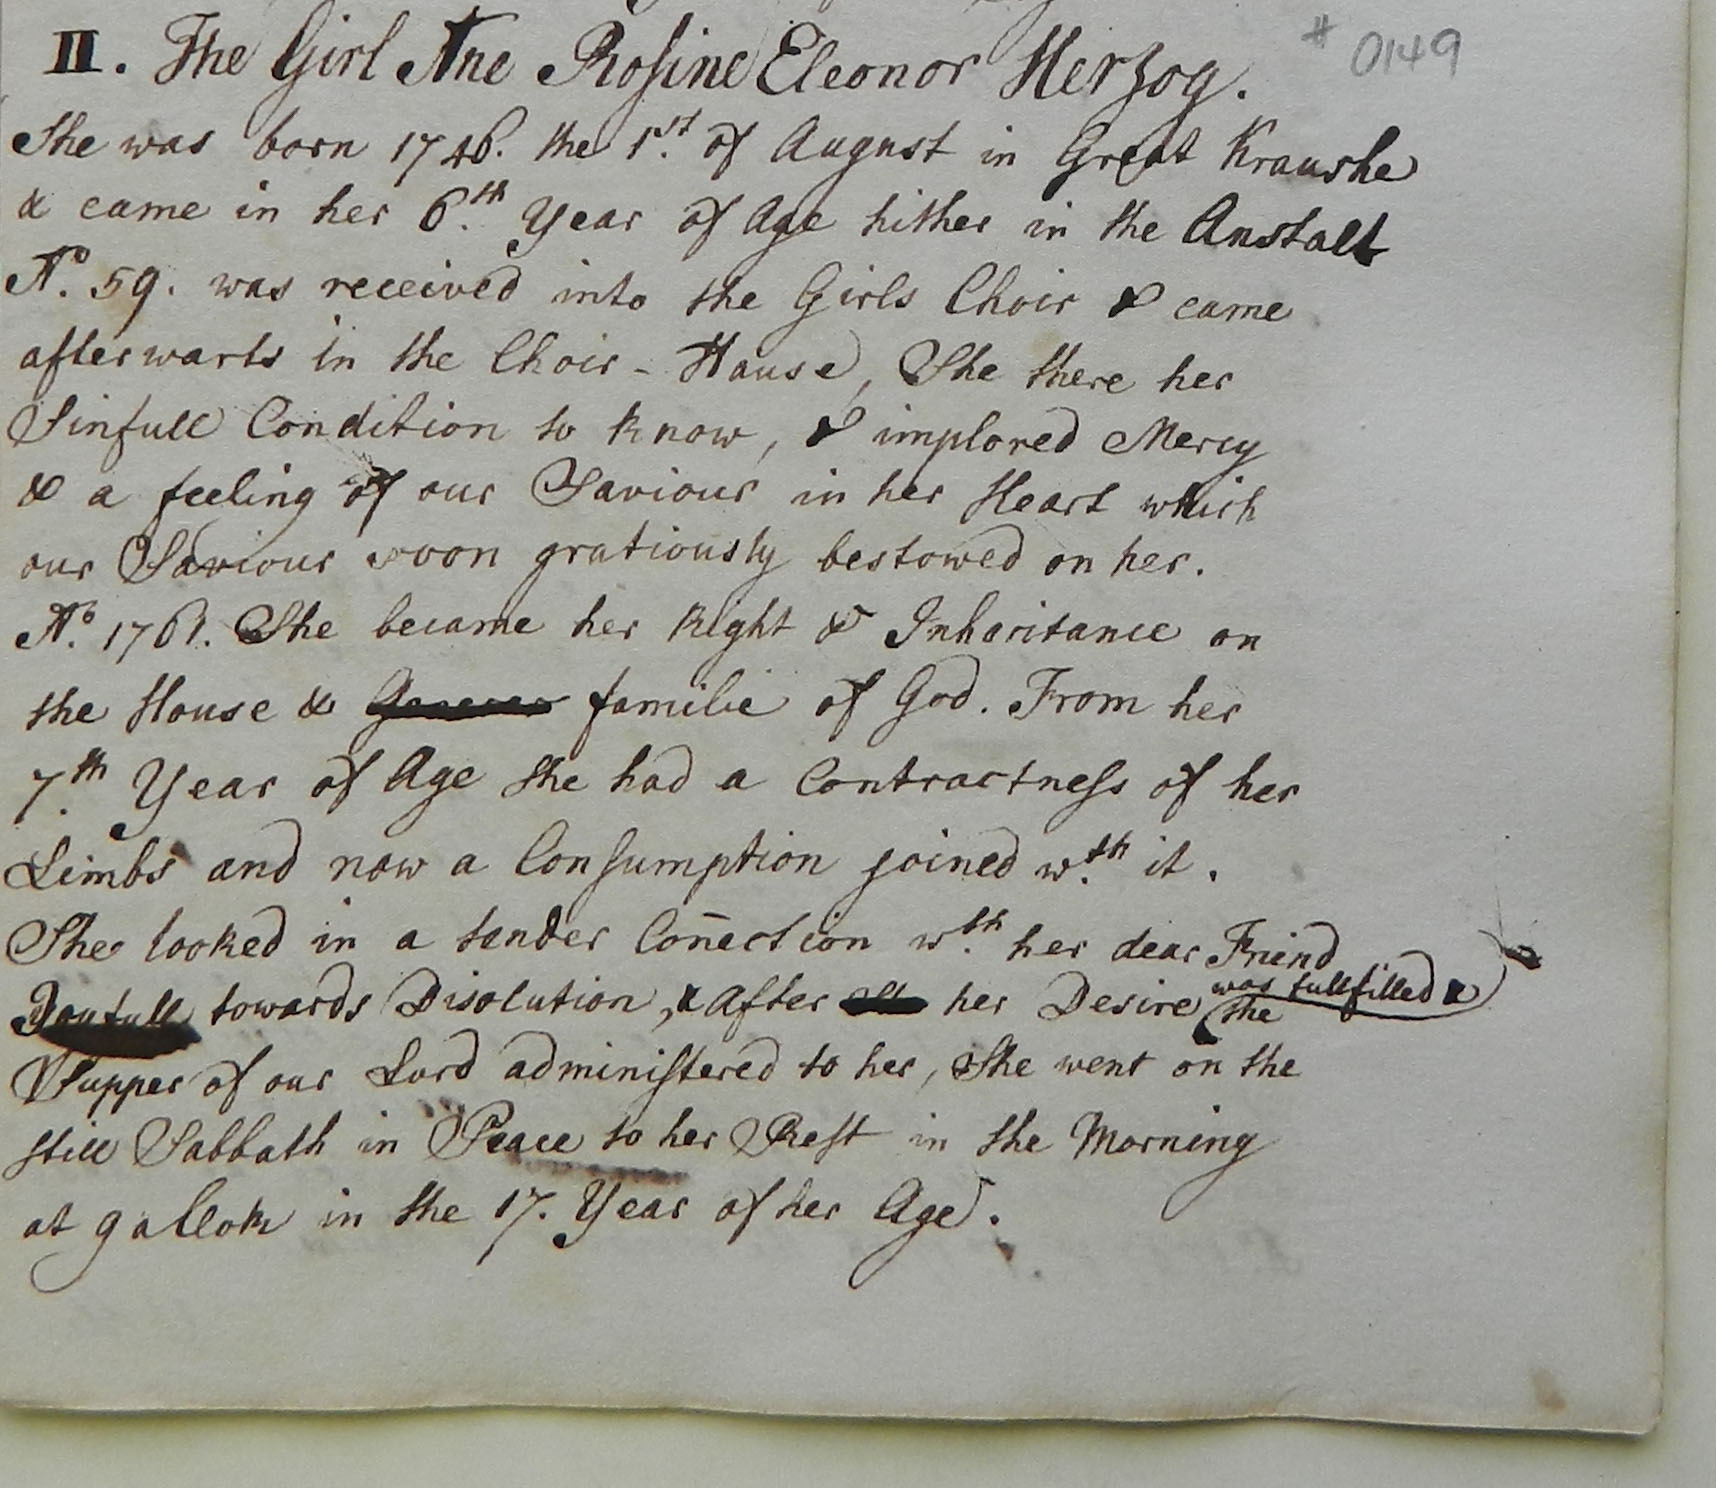 II. The Girl Ane Rosine Eleonor Herzog.
# 0149
She was born 1746. the 1st. of August in Great Kraushe
& came in her 6th. Year of Age hither in the Anstalt
Ao. 59. was received into the Girls Choir & came
afterwarts in the Choir-Hause, She there her
Sinfull Condition to know, & implored Mercy
& a feeling of our Saviour in her Heart which
our Saviour soon gratiously bestowed on her.
Ao. 1761. She became her Right & Inharitance on
the House & familie of God. From her
7th. Year of Age she had a Contractness of her
Limbs and now a Consumption joined wth. it.
She looked in a tander Con̅ection wth. her dear Friend
Joyfull towards Disolution, & After her Desire was fullfilled & the
Supper of our Lord administered to her, She went on the
still Sabbath in Peace to her Rest in the Morning
at 9 aClok in the 17. Year of her Age.